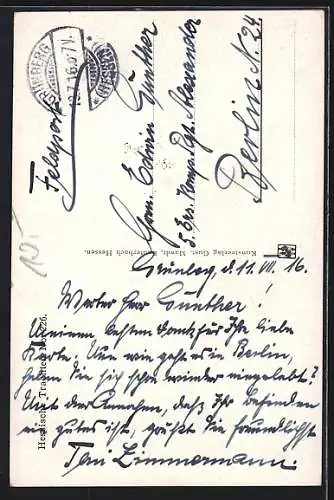 Feldpost
GRÜNBERG
(HESSEN)
Gren. Edwin Günther
5. Ers. Komp. Rgt. Alexander
Berlin N 24
Kunstverlag Gust. Mandt, Lauterbach Hessen.
Hessische Trachten No. 326.
Grünberg, d. 11. VII. 16.
Werter Herr Günther!
Meinen besten Dank für Ihre liebe
Karte. Nun wie geht es in Berlin,
haben Sie sich schon wieder eingelebt?
Mit der Annahme, daß Ihr Befinden
ein gutes ist, grüßt Sie freundlichst
Toni Zimmermann.